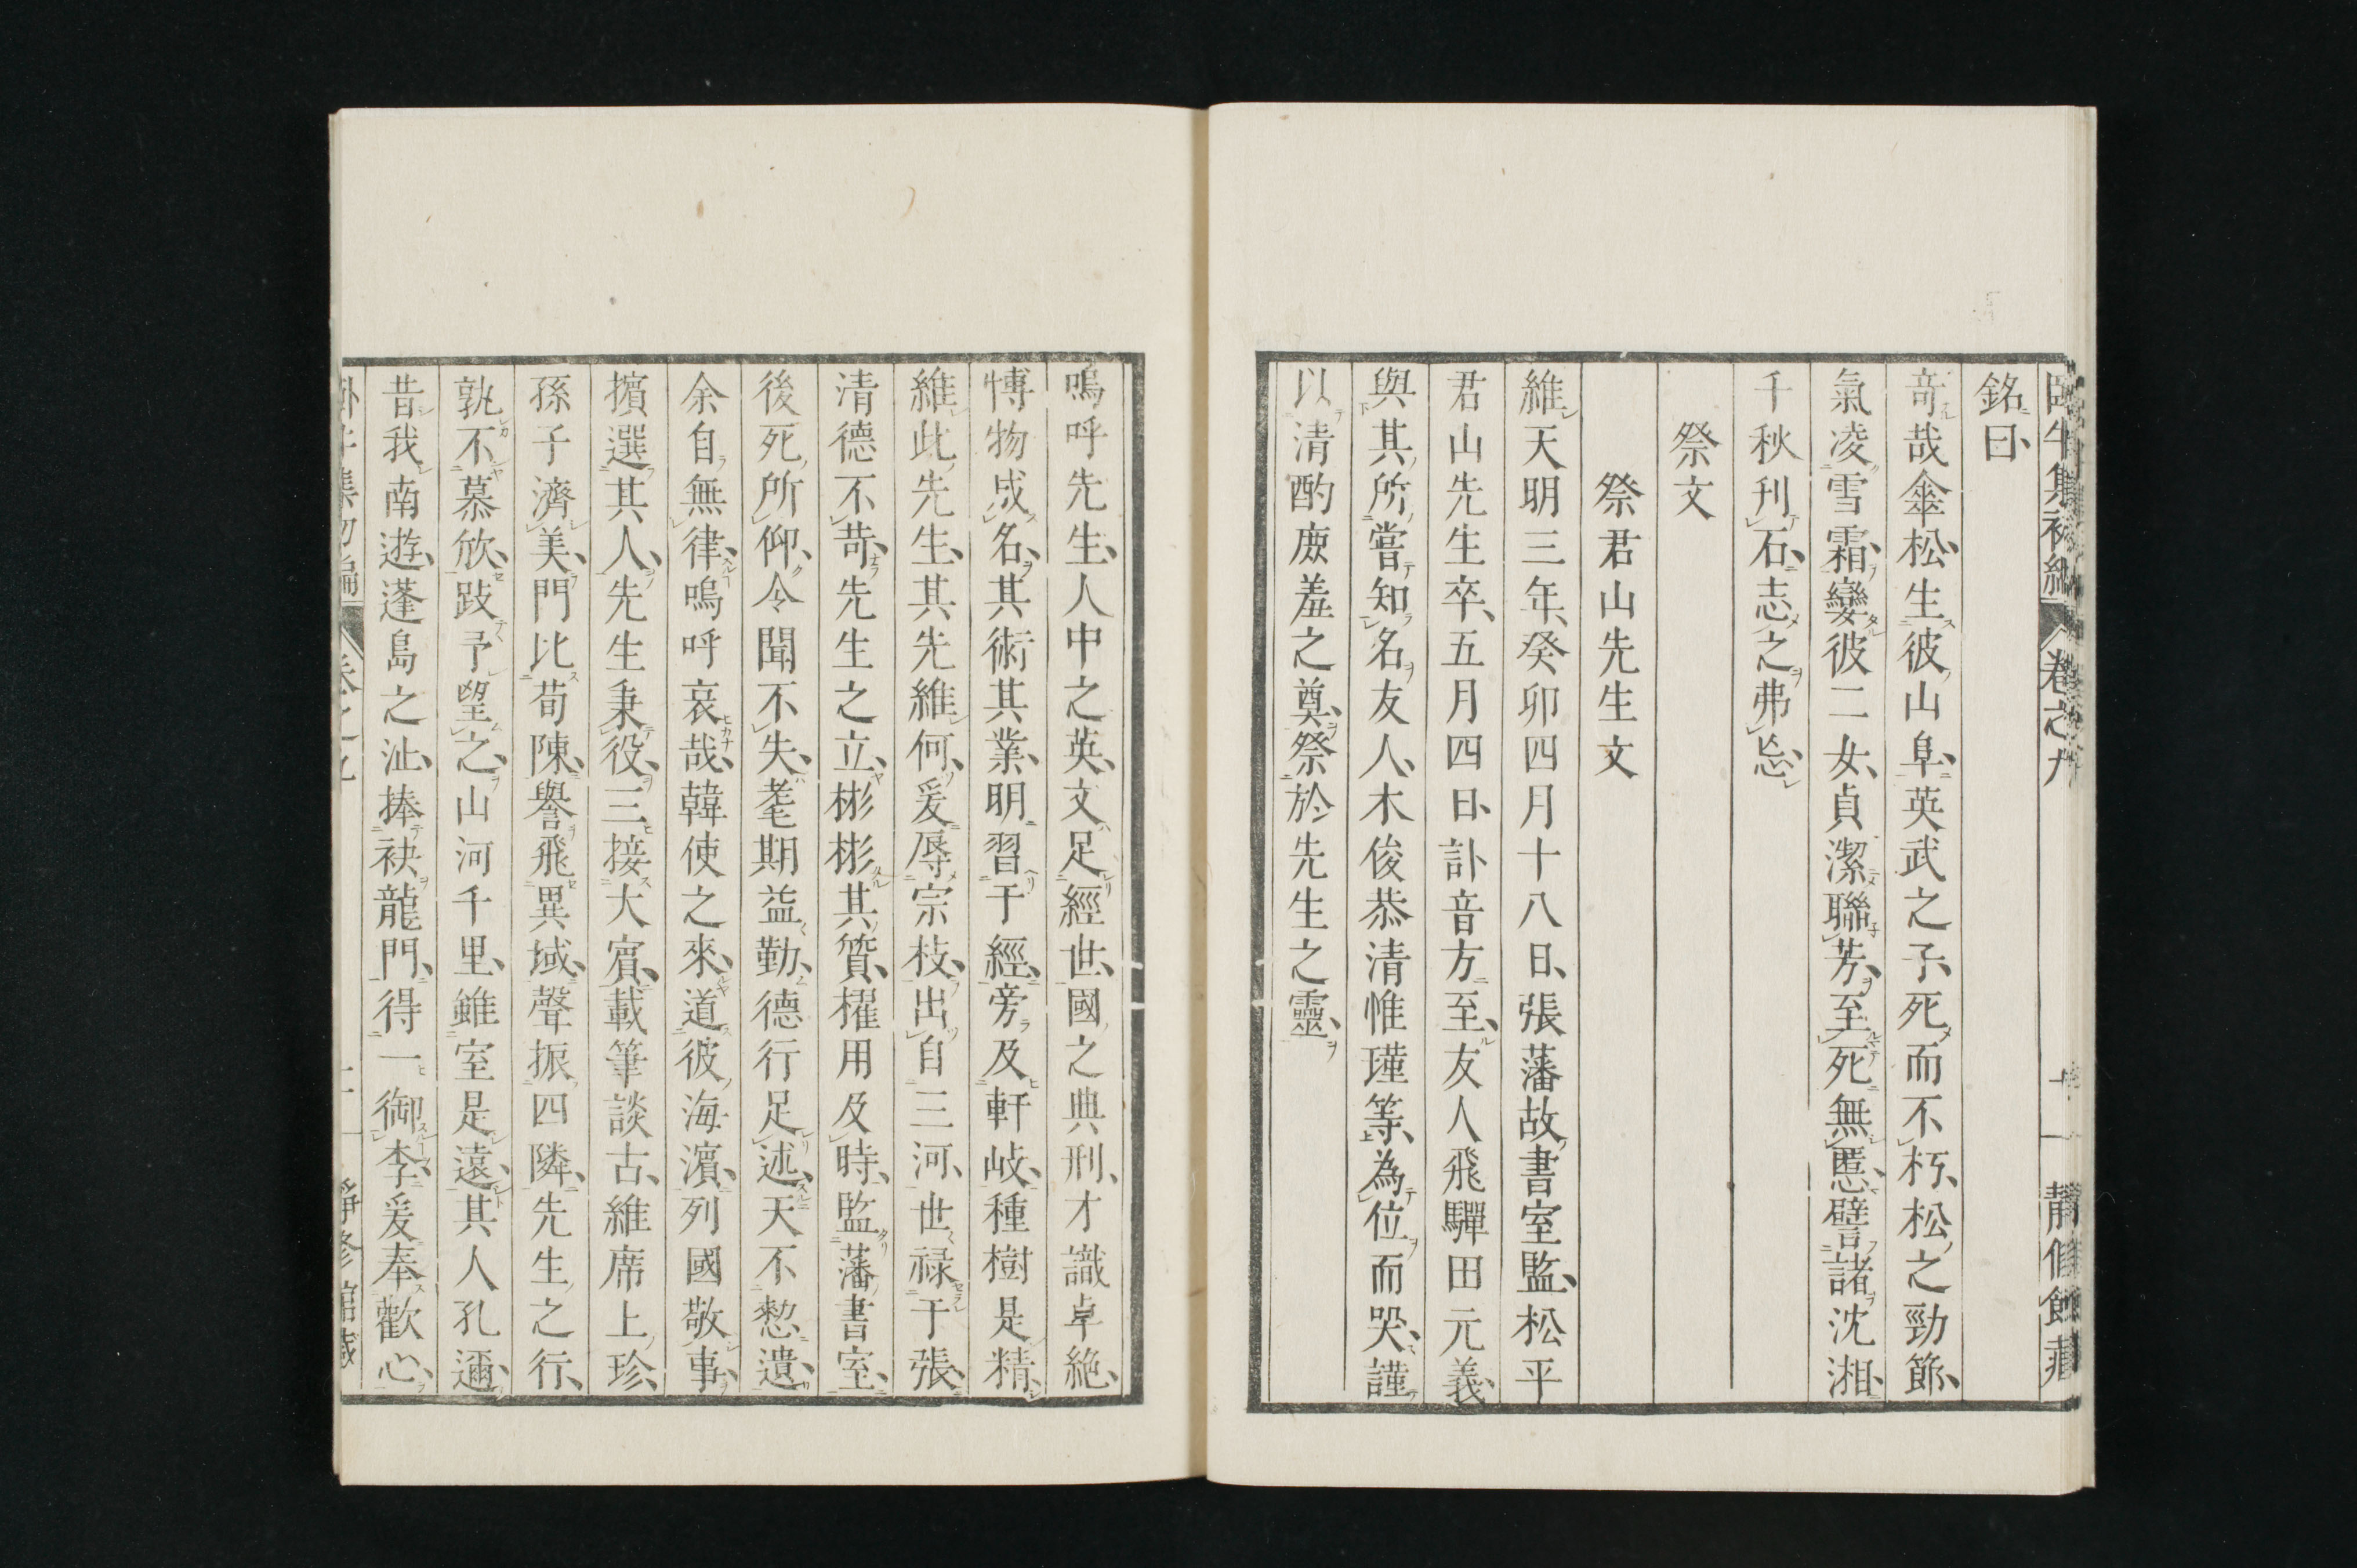 臥牛集初編 卷之九 十一 靜修館藏
銘曰、
奇哉傘松、生彼山阜、英武之子、死而不朽、松之勁節、
氣凌雪霜、孌彼二女、貞潔聯芳、至死無慝、譬諸沈湘、
千秋刊石、志之弗忘、
祭文
祭君山先生文
維天明三年、癸卯四月十八日、張藩故書室監、松平
君山先生卒、五月四日、訃音方至、友人飛驒田元義、
與其所嘗知名友人、木俊恭清惟瑾等、為位而哭、謹
以清酌庶羞之奠、祭於先生之靈、
嗚呼先生、人中之英、文足經世、國之典刑、才識卓絶、
博物成名、其術其業、明習于經、旁及軒岐、種樹是精、
維此先生、其先維何、爰辱宗枝、出自三河、世祿于張、
清德不苛、先生之立、彬彬其質、擢用及時、監藩書室、
後死所仰、令聞不失、耄期益勤、德行足述、天不憖遺、
余自無律、嗚呼哀哉、韓使之來、道彼海濵、列國敬事、
擯選其人、先生秉役、三接大賓、載筆談古、維席上珍、
孫子濟美、門比荀陳、譽飛異域、聲振四隣、先生之行、
孰不慕欣、跂予望之、山河千里、雖室是遠、其人孔邇、
昔我南遊、蓬島之沚、捧袂龍門、得一御李、爰奉歡心、
臥牛集初編 卷之九 十一 靜修館藏